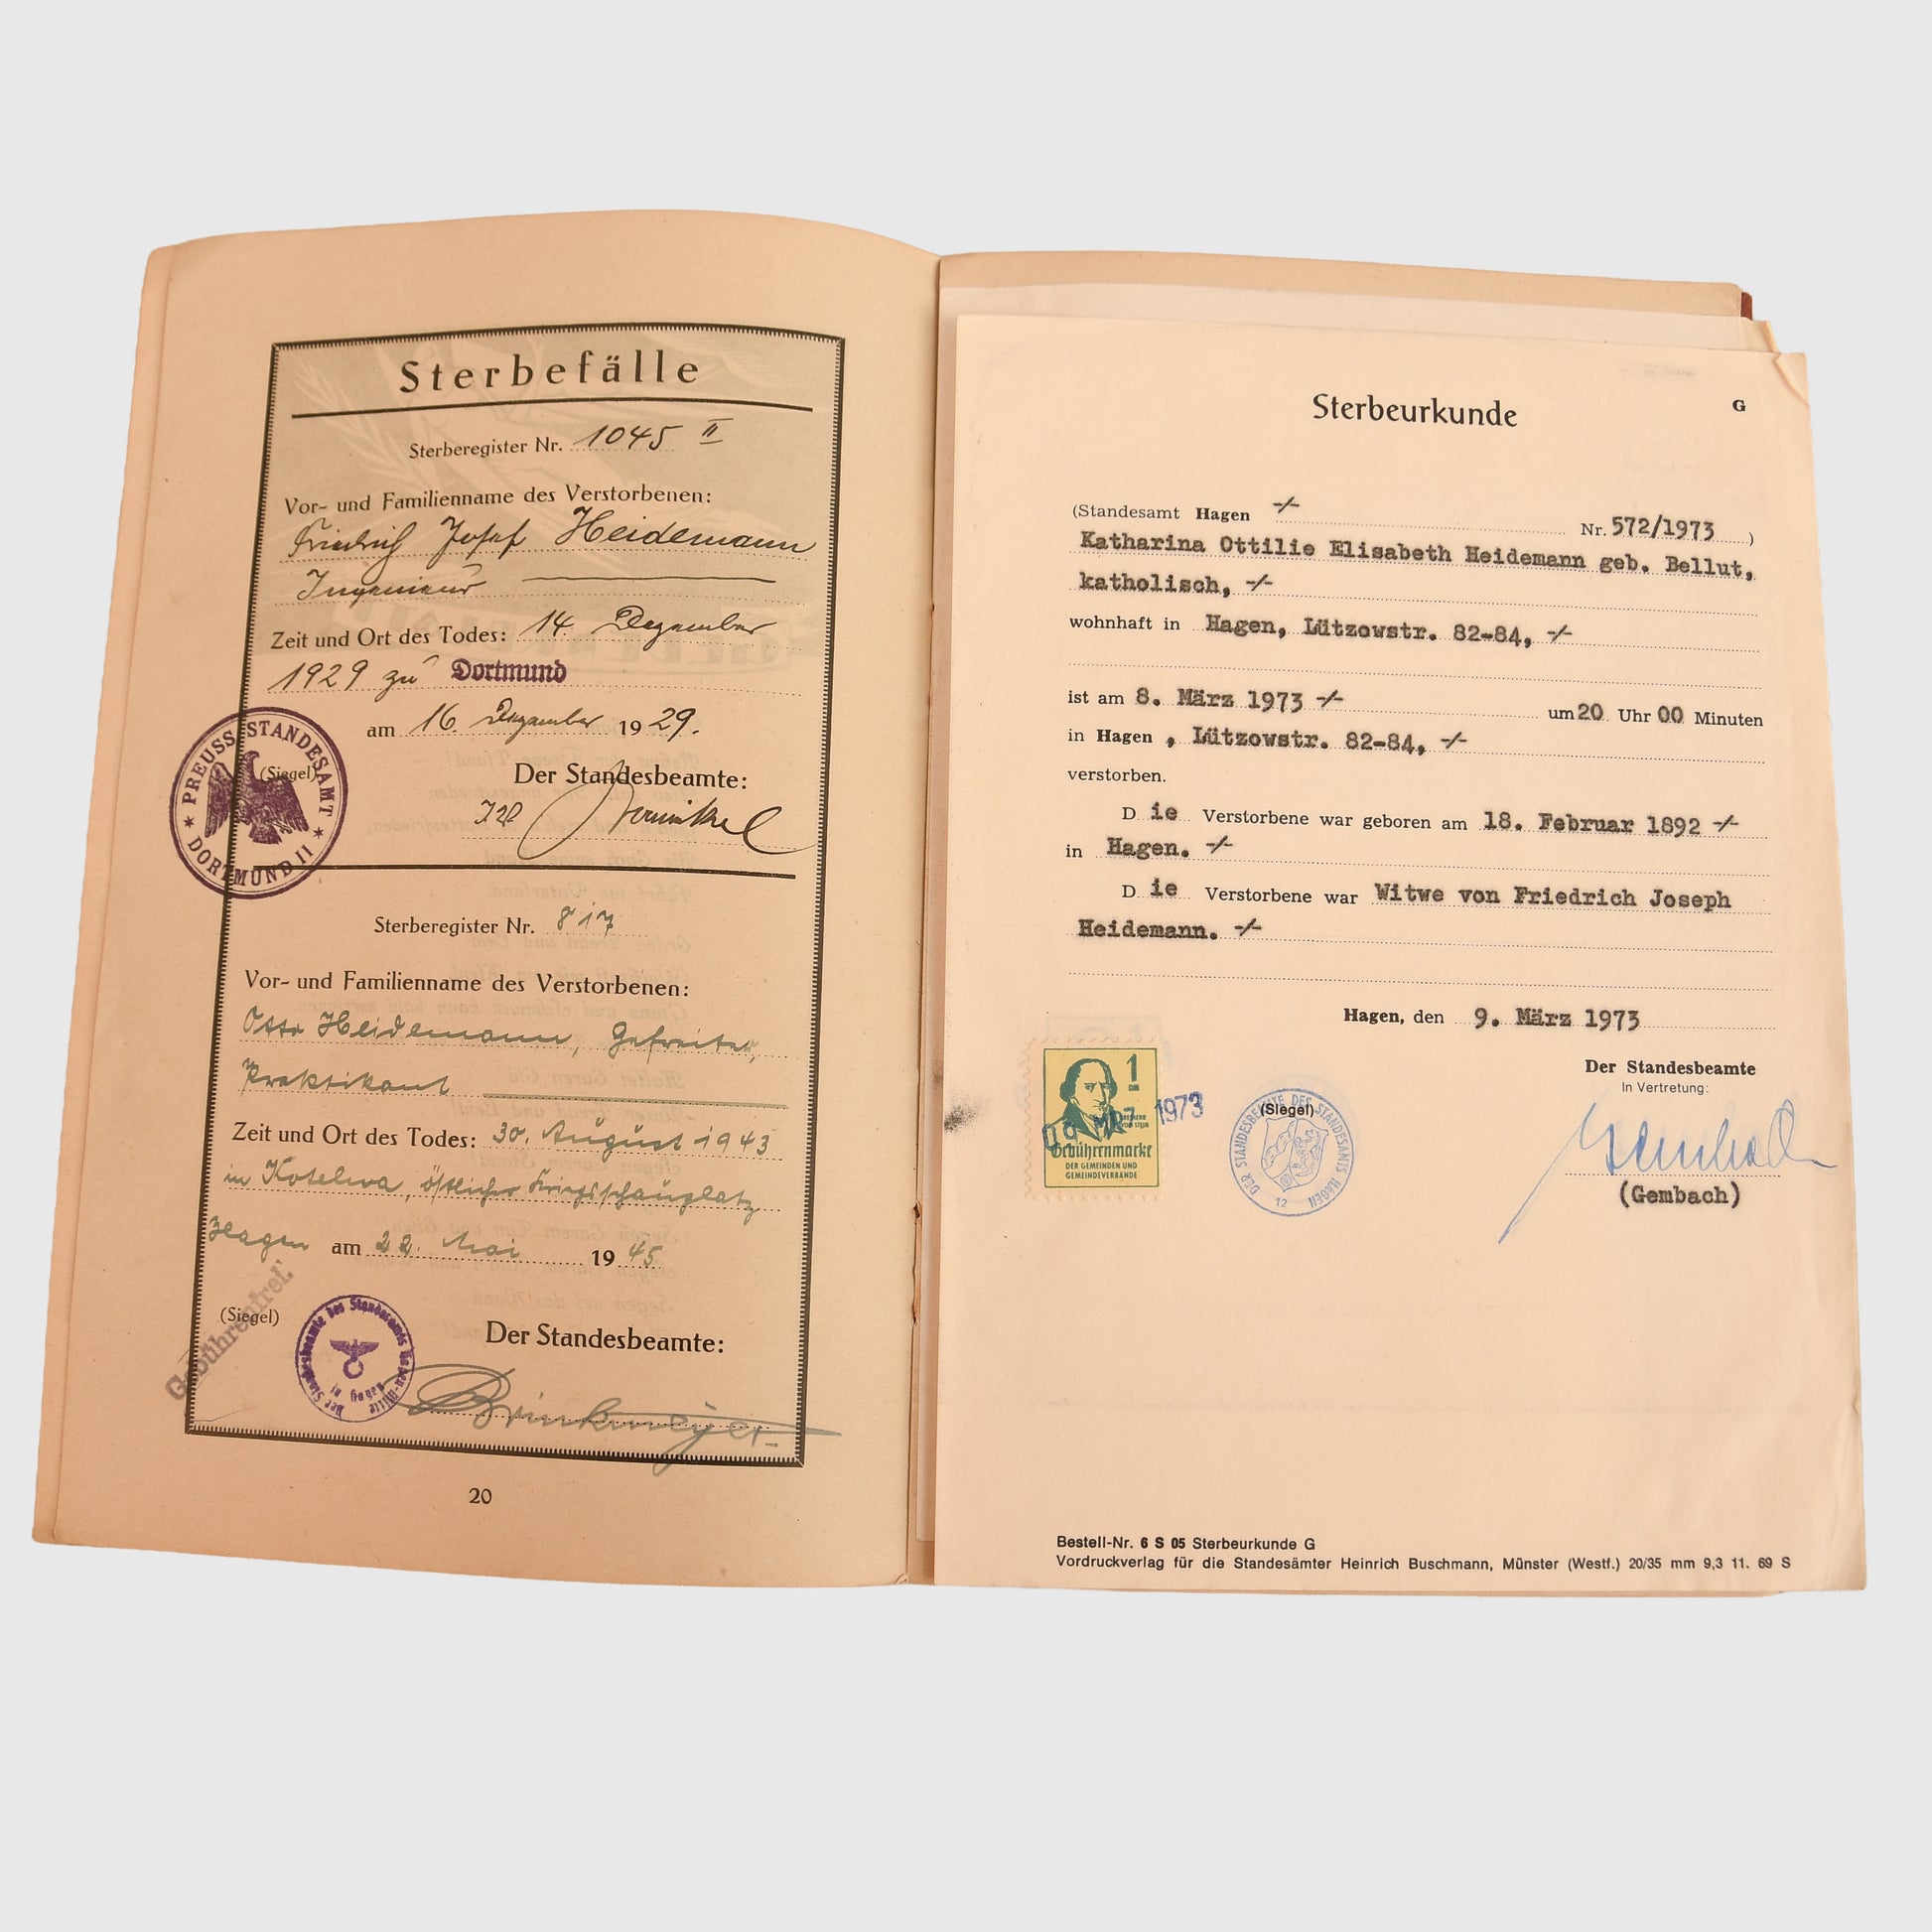 Sterbefälle
Sterberegister Nr. 1045 II
Vor- und Familienname des Verstorbenen:
Friedrich Josef Heidemann
Ingenieur
Zeit und Ort des Todes: 14. Dezember
1929 zu Dortmund
am 16. Dezember 1929.
PREUSS. STANDESAMT
DORTMUND II
(Siegel)
Der Standesbeamte:
Sterberegister Nr. 817
Vor- und Familienname des Verstorbenen:
Otto Heidemann, Gefreiter,
Praktikant
Zeit und Ort des Todes: 30. August 1943
in Kotelwa, östlicher Kriegsschauplatz
Hagen am 22. Mai 1945
Gebührenfrei!
(Siegel)
Der Standesbeamte des Standesamts Hagen-Mitte
in Hagen
Der Standesbeamte:
Brinkmeyer
20
Sterbeurkunde
G
(Standesamt Hagen -/- Nr. 572/1973)
Katharina Ottilie Elisabeth Heidemann geb. Bellut,
katholisch, -/-
wohnhaft in Hagen, Lützowstr. 82-84, -/-
ist am 8. März 1973 -/- um 20 Uhr 00 Minuten
in Hagen , Lützowstr. 82-84, -/-
verstorben.
D ie Verstorbene war geboren am 18. Februar 1892 -/-
in Hagen. -/-
D ie Verstorbene war Witwe von Friedrich Joseph
Heidemann. -/-
Hagen, den 9. März 1973
Der Standesbeamte
In Vertretung:
(Gembach)
1
DM
FREIHERR
VOM STEIN
09. MRZ. 1973
Gebührenmarke
DER GEMEINDEN UND
GEMEINDEVERBÄNDE
(Siegel)
DER STANDESBEAMTE DES STANDESAMTS HAGEN
12
Bestell-Nr. 6 S 05 Sterbeurkunde G
Vordruckverlag für die Standesämter Heinrich Buschmann, Münster (Westf.) 20/35 mm 9,3 11. 69 S